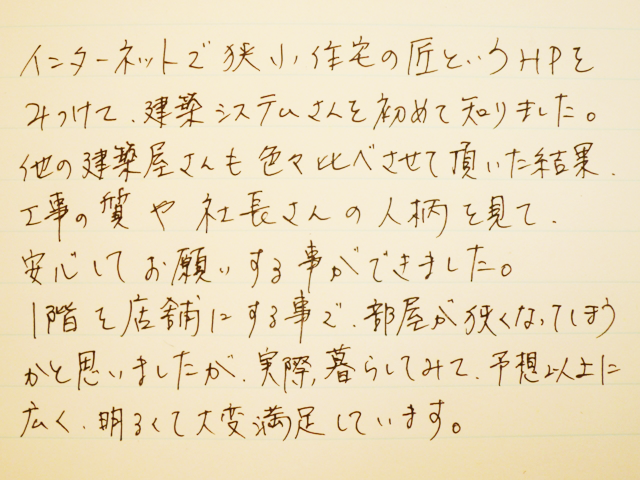 インターネットで狭小住宅の匠というHPを
みつけて、建築システムさんを初めて知りました。
他の建築屋さんも色々比べさせて頂いた結果、
工事の質や社長さんの人柄を見て、
安心してお願いする事ができました。
1階を店舗にする事で、部屋が狭くなってしまう
かと思いましたが、実際、暮らしてみて、予想以上に
広く、明るくて大変満足しています。